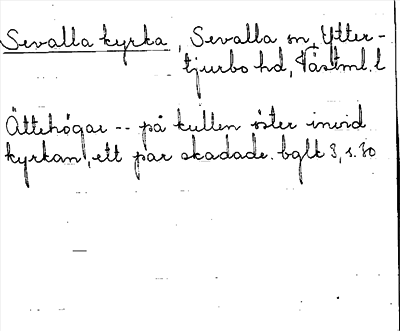 Sevalla kyrka, Sevalla sn, Ytter-
tjurbo hd, Västml. l
Ättehögar -- på kullen öster invid
kyrkan, ett par skadade. bglt 3, s. 30